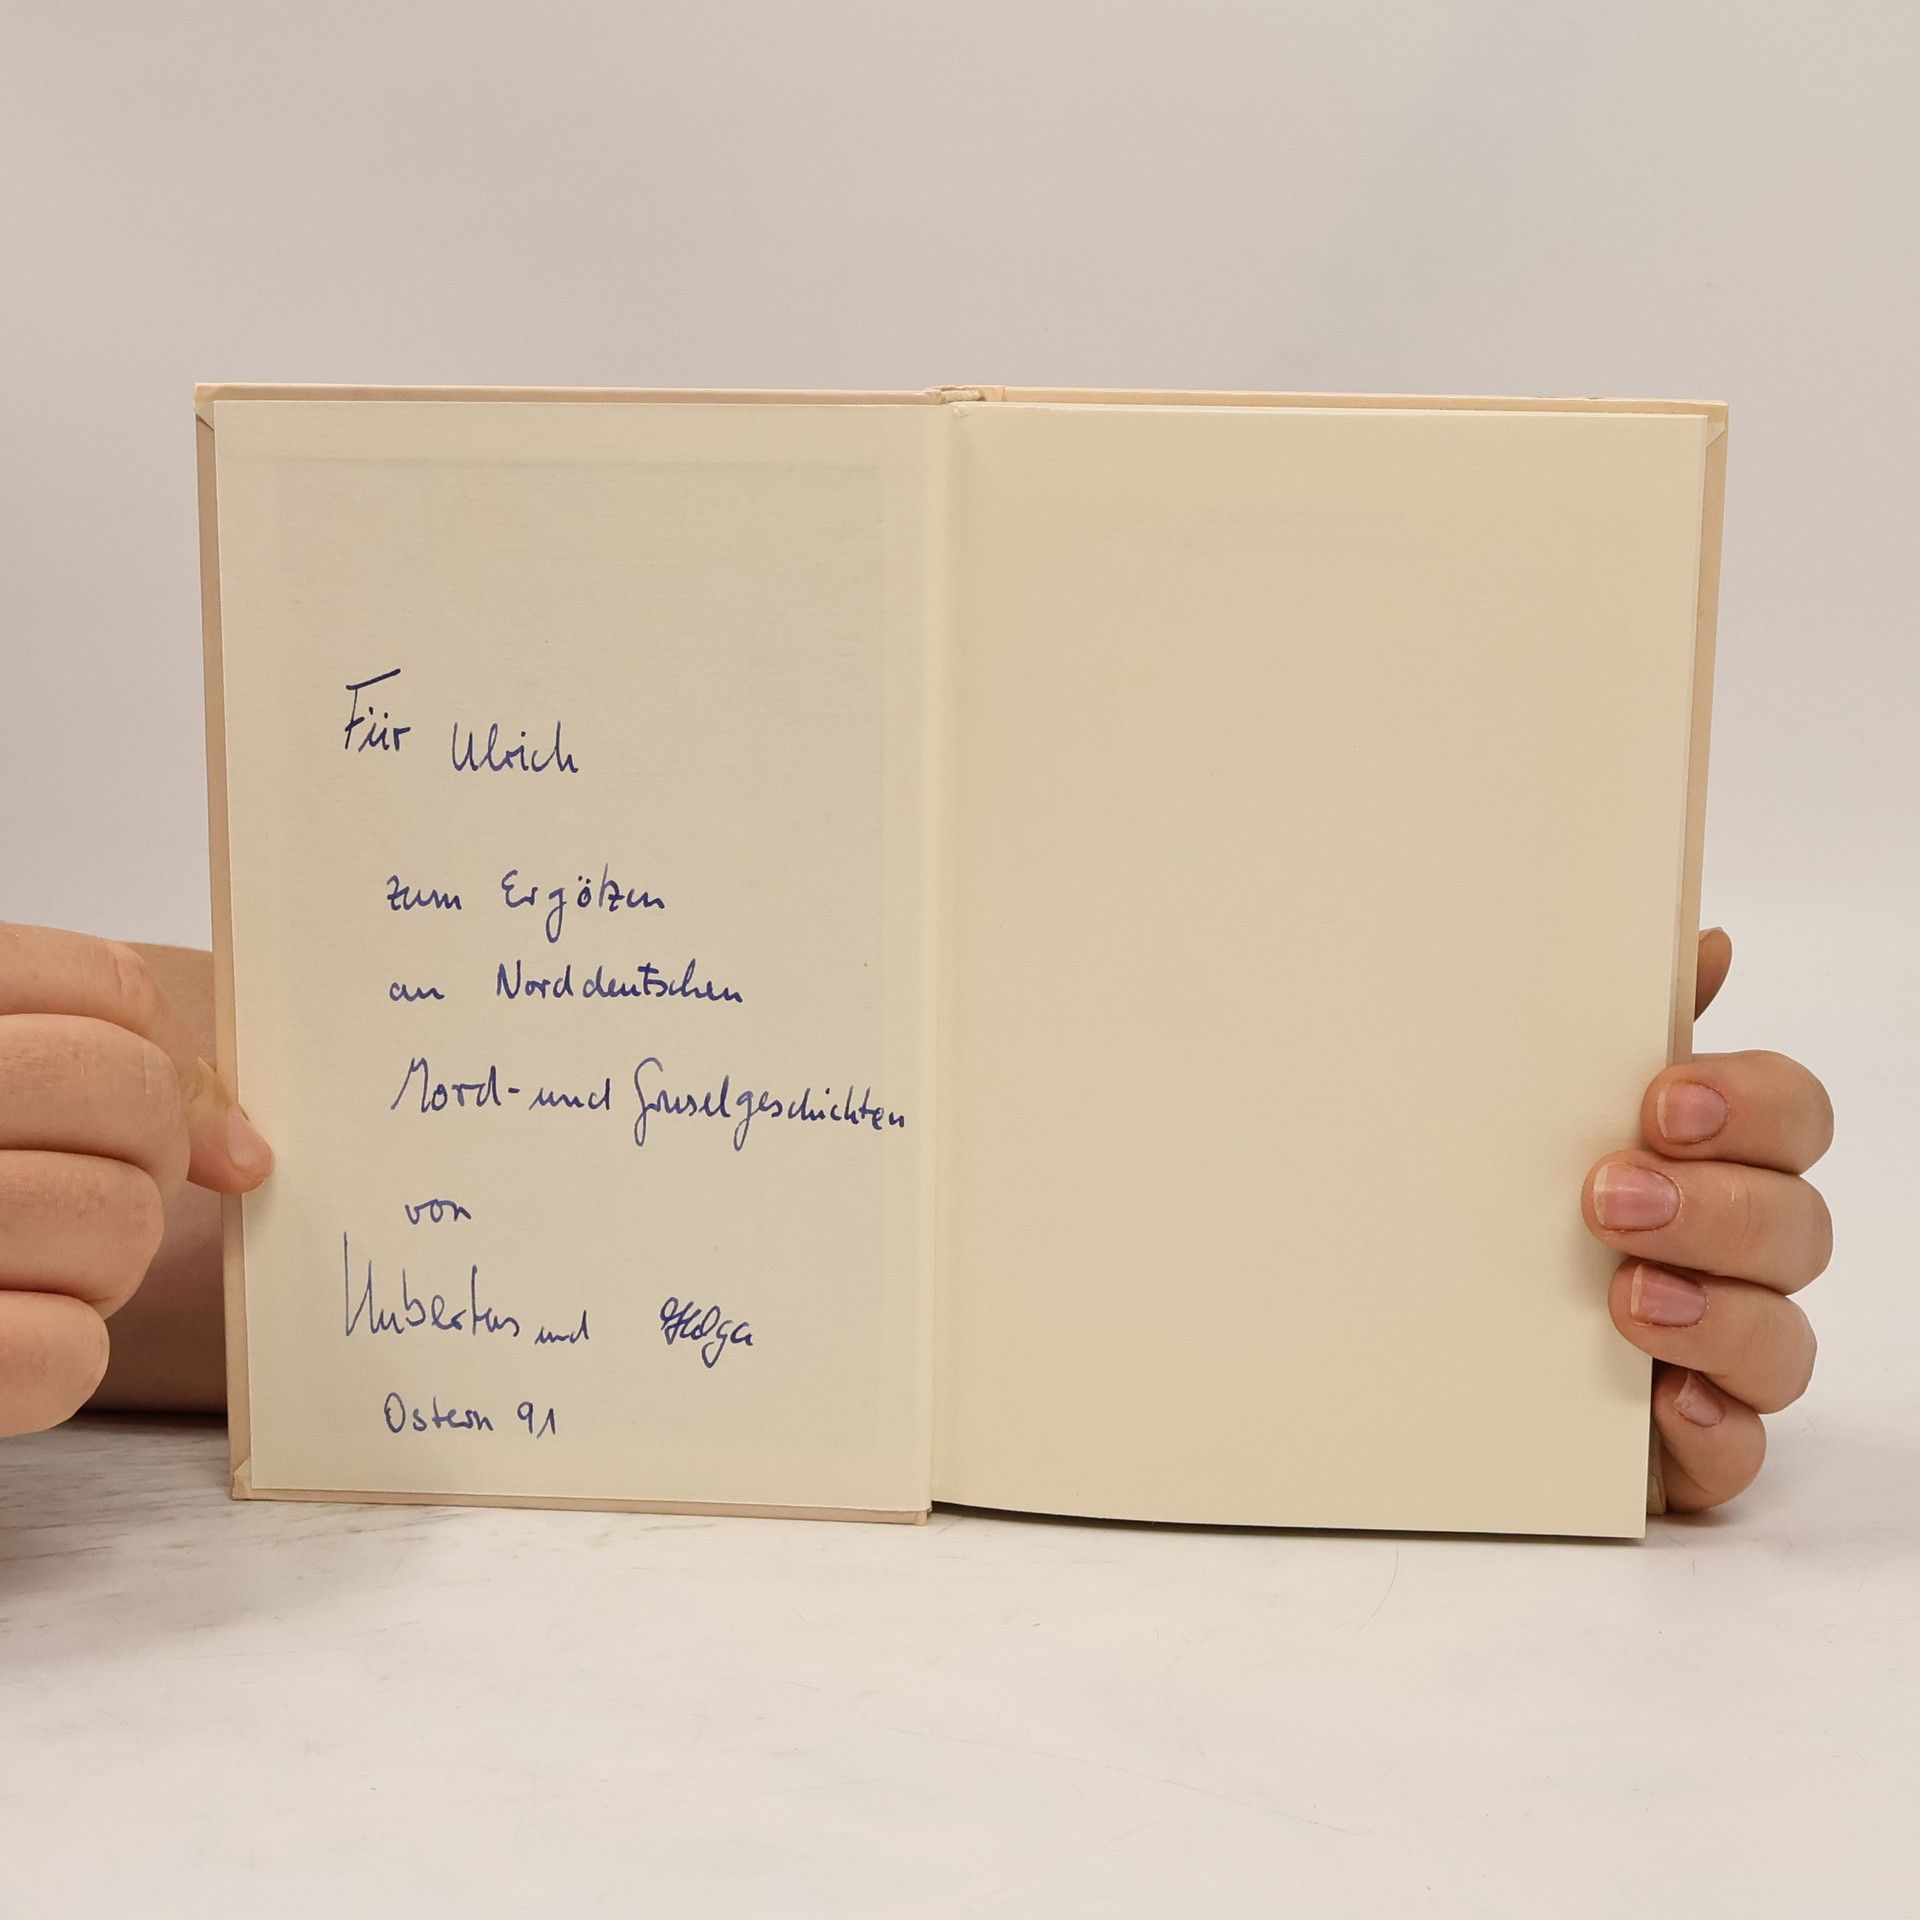 Für Ulrich
zum Ergötzen
an Norddeutschen
Mord- und Gruselgeschichten
von
Hubertus und Helga
Ostern 91